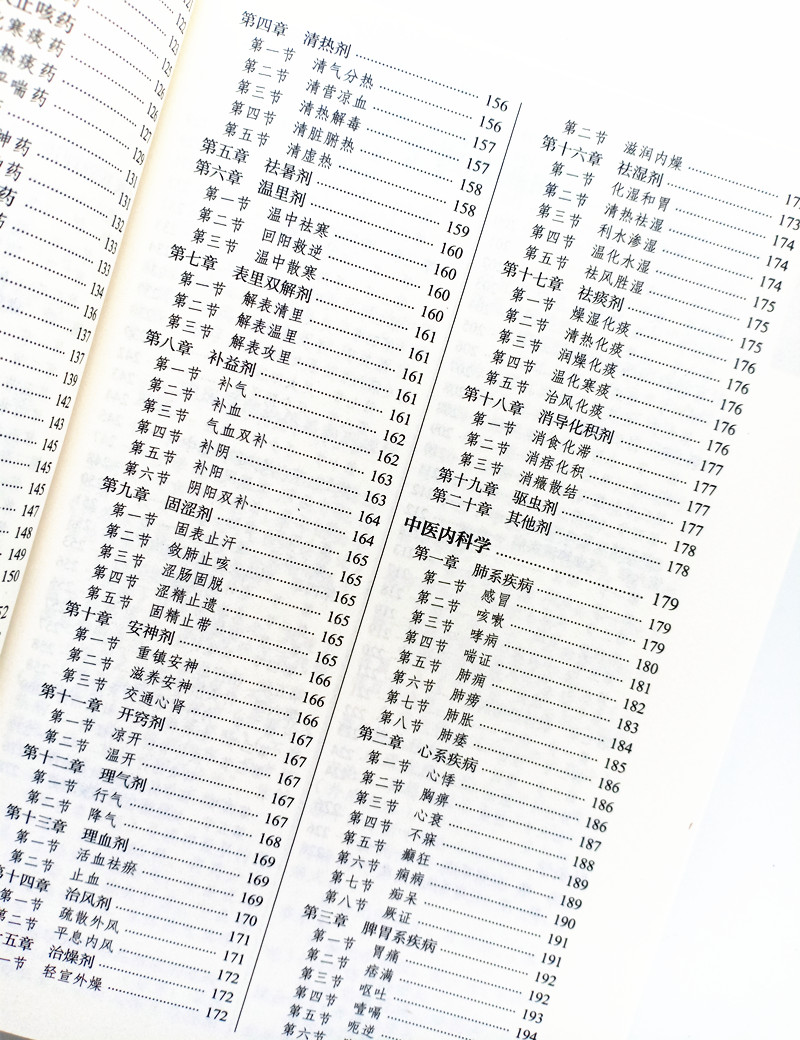 止咳药
化寒痰药
热痰药
平喘药
神药
药
药
131
131
132
133
133
134
136
137
137
139
142
143
145
145
145
147
148
149
150
第四章 清热剂 156
第一节 清气分热 156
第二节 清营凉血 157
第三节 清热解毒 157
第四节 清脏腑热 158
第五节 清虚热 158
第五章 祛暑剂 159
第六章 温里剂 160
第一节 温中祛寒 160
第二节 回阳救逆 160
第三节 温中散寒 160
第七章 表里双解剂 161
第一节 解表清里 161
第二节 解表温里 161
第三节 解表攻里 161
第八章 补益剂 161
第一节 补气 162
第二节 补血 162
第三节 气血双补 163
第四节 补阴 163
第五节 补阳 164
第六节 阴阳双补 164
第九章 固涩剂 165
第一节 固表止汗 165
第二节 敛肺止咳 165
第三节 涩肠固脱 165
第四节 涩精止遗 165
第五节 固精止带 165
第十章 安神剂 166
第一节 重镇安神 166
第二节 滋养安神 166
第三节 交通心肾 167
第十一章 开窍剂 167
第一节 凉开 167
第二节 温开 167
第十二章 理气剂 167
第一节 行气 168
第二节 降气 169
第十三章 理血剂 169
第一节 活血祛瘀 169
第二节 止血 170
第十四章 治风剂 171
第一节 疏散外风 171
第二节 平息内风 172
十五章 治燥剂 172
一节 轻宣外燥 172
第二节 滋润内燥
第十六章 祛湿剂 173
第一节 化湿和胃 174
第二节 清热祛湿 174
第三节 利水渗湿 174
第四节 温化水湿 175
第五节 祛风胜湿 175
第十七章 祛痰剂 175
第一节 燥湿化痰 176
第二节 清热化痰 176
第三节 润燥化痰 176
第四节 温化寒痰 176
第五节 治风化痰 176
第十八章 消导化积剂 177
第一节 消食化滞 177
第二节 消痞化积 177
第三节 消癥散结 177
第十九章 驱虫剂 178
第二十章 其他剂 178
中医内科学 179
第一章 肺系疾病 179
第一节 感冒 179
第二节 咳嗽 180
第三节 哮病 181
第四节 喘证 182
第五节 肺痈 183
第六节 肺痨 184
第七节 肺胀 185
第八节 肺痿 186
第二章 心系疾病 186
第一节 心悸 186
第二节 胸痹 187
第三节 心衰 188
第四节 不寐 189
第五节 癫狂 189
第六节 痫病 190
第七节 痴呆 191
第八节 厥证 191
第三章 脾胃系疾病 192
第一节 胃痛 192
第二节 痞满 193
第三节 呕吐 194
第四节 噎嗝
第五节 呃逆
第六节